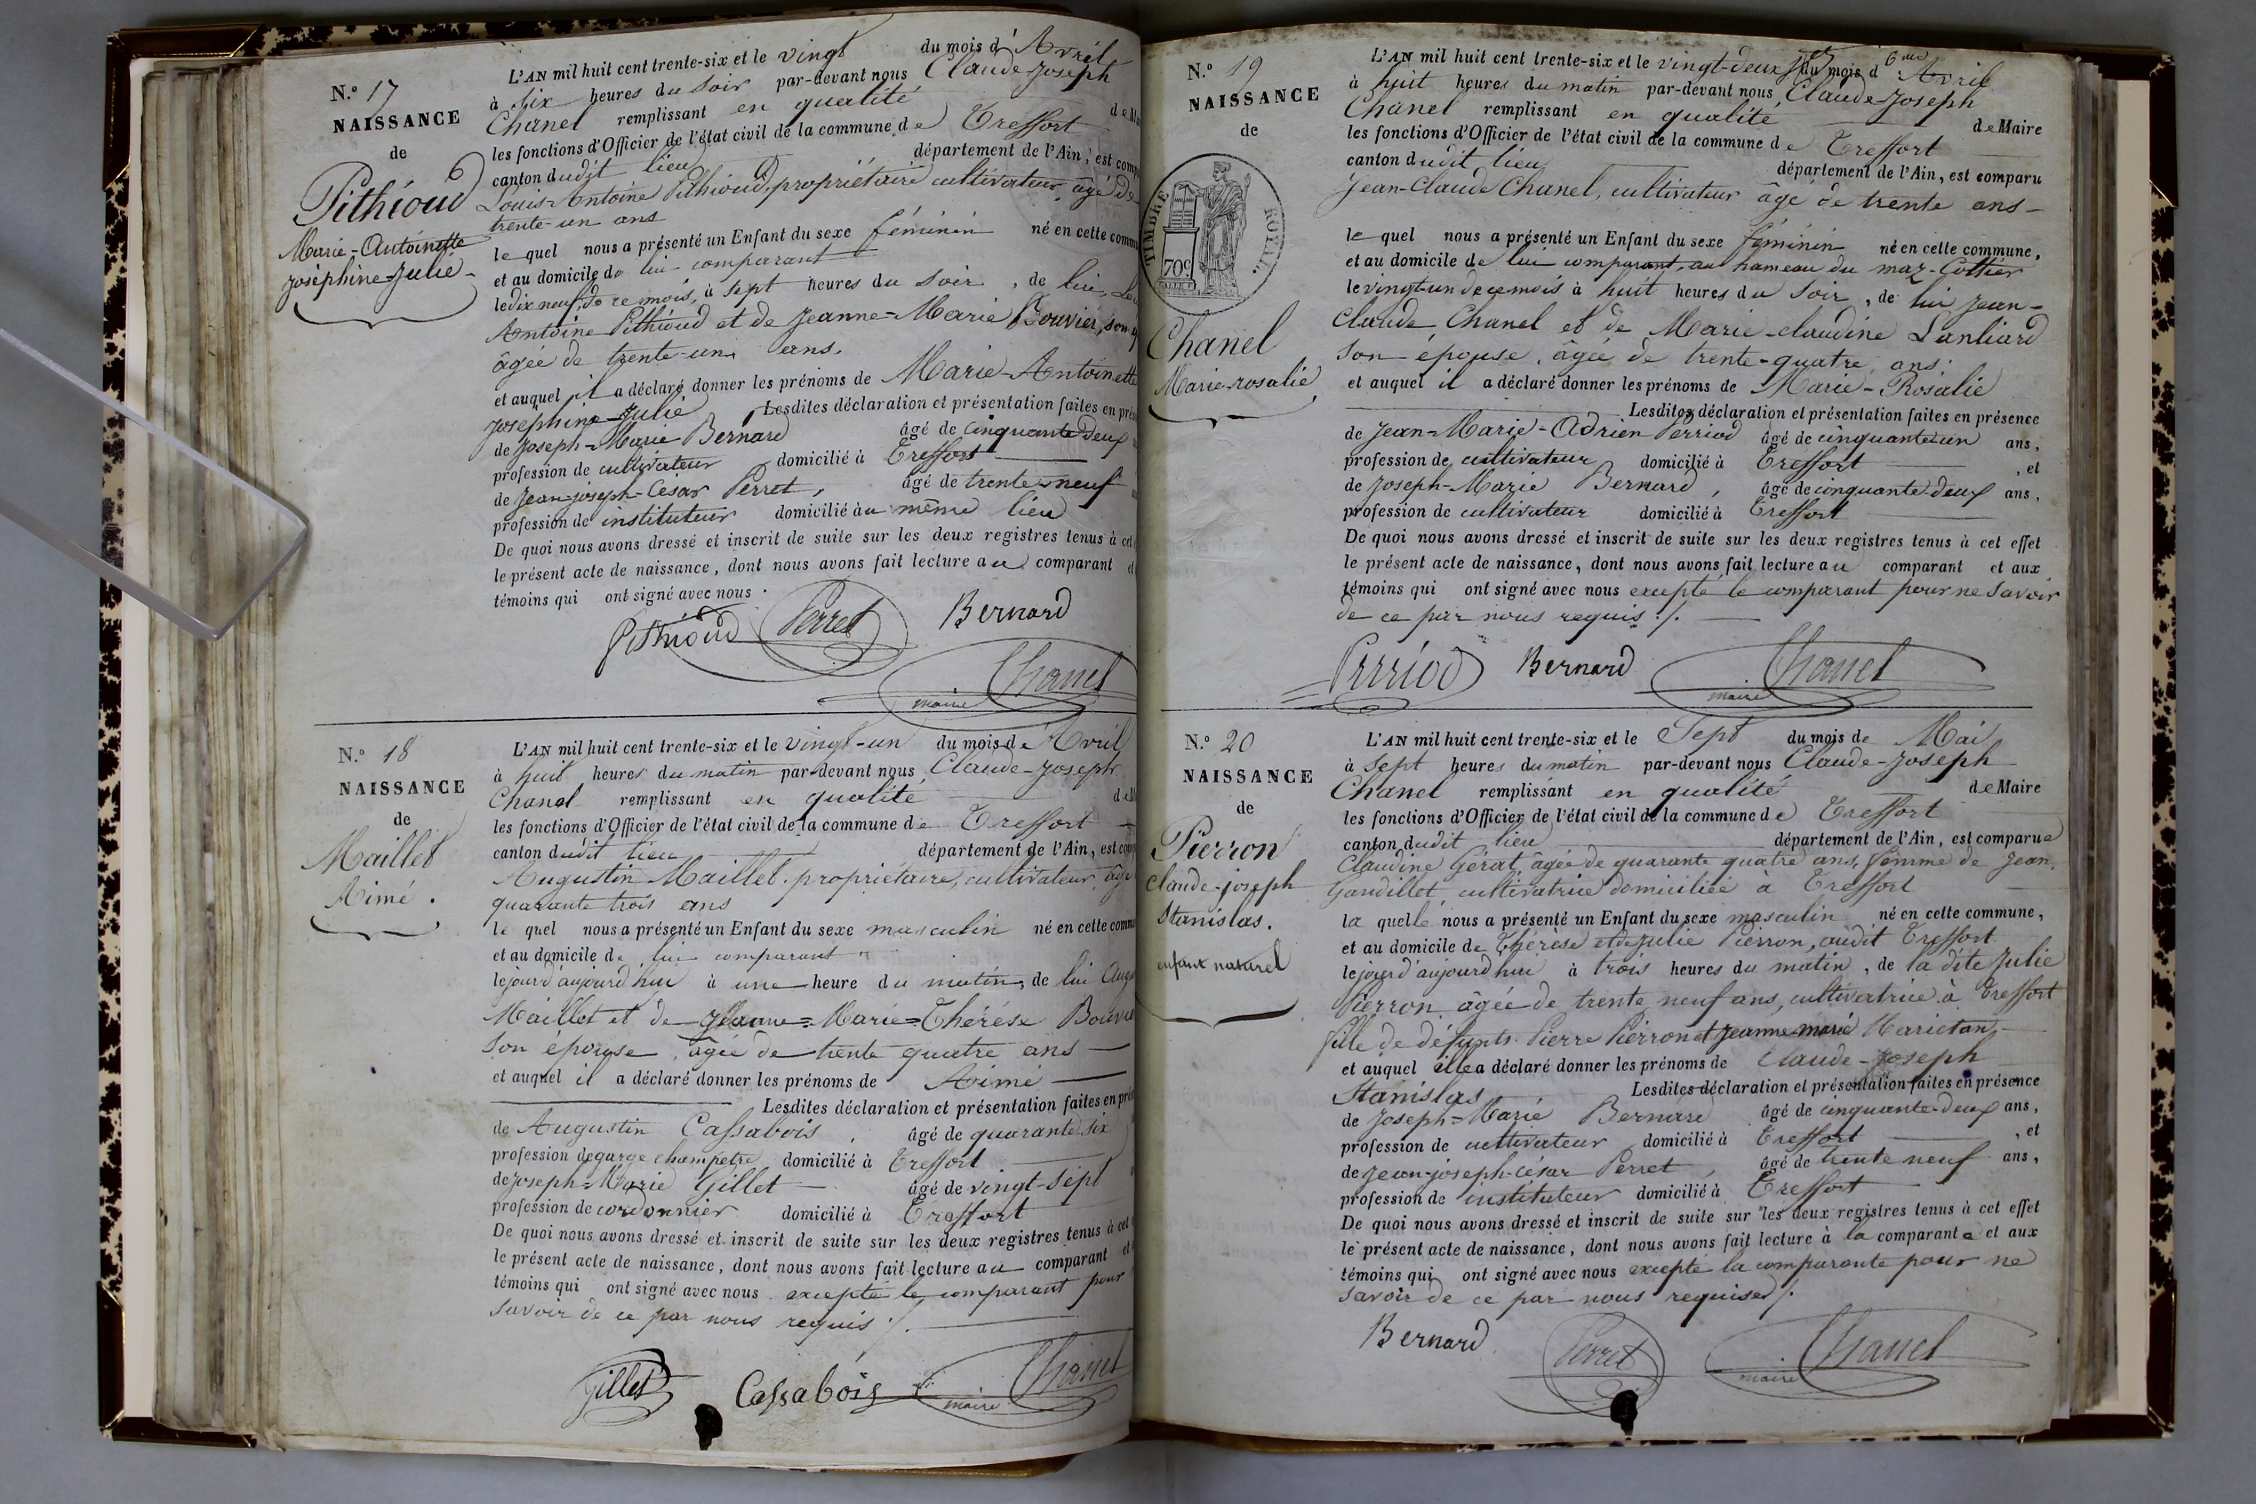 N.º 17
NAISSANCE
de
Pithioud
Marie-Antoinette
Joséphine-Julie
L'AN mil huit cent trente-six et le vingt du mois d'Avril
à six heures du soir par-devant nous Claude-Joseph
Chanel remplissant en qualité de
les fonctions d'Officier de l'état civil de la commune de Treffort
canton dudit lieu département de l'Ain, est
Louis-Antoine Pithioud, propriétaire cultivateur âgé de
trente-un ans
le quel nous a présenté un Enfant du sexe féminin né en cette
et au domicile de lui comparant
le dix neuf de ce mois, à sept heures du soir, de lui
Antoine Pithioud et de Jeanne-Marie Bouvier, son
âgée de trente-un ans.
et auquel il a déclaré donner les prénoms de Marie-Antoinette
Joséphine-Julie Lesdites déclaration et présentation faites en
de Joseph-Marie Bernard âgé de cinquante-deux
profession de cultivateur domicilié à Treffort
de Jean-joseph-César Perret, âgé de trente-neuf
profession de instituteur domicilié au même lieu
De quoi nous avons dressé et inscrit de suite sur les deux registres tenus à cet
le présent acte de naissance, dont nous avons fait lecture au comparant et
témoins qui ont signé avec nous.
Pithioud Perret Bernard
Chanel
maire
N.º 18
NAISSANCE
de
Maillet
Aimé.
L'AN mil huit cent trente-six et le vingt-un du mois de Avril
à huit heures du matin par-devant nous Claude-Joseph
Chanel remplissant en qualité de
les fonctions d'Officier de l'état civil de la commune de Treffort
canton dudit lieu département de l'Ain, est
Augustin Maillet, propriétaire, cultivateur, âgé
quarante trois ans
le quel nous a présenté un Enfant du sexe masculin né en cette
et au domicile de lui comparant
le jour d'aujourd'hui à une heure du matin, de lui
Maillet et de Jeanne-Marie-Thérèse
son épouse, âgée de trente quatre ans
et auquel il a déclaré donner les prénoms de Aimé
Lesdites déclaration et présentation faites en
de Augustin Cassabois, âgé de quarante six
profession de garge champetre domicilié à Treffort
de Joseph-Marie Gillet âgé de vingt-sept
profession de cordonnier domicilié à Treffort
De quoi nous avons dressé et inscrit de suite sur les deux registres tenus à cet
le présent acte de naissance, dont nous avons fait lecture au comparant et
témoins qui ont signé avec nous excepté le comparant pour
savoir de ce par nous requis ./.
Gillet Cassabois Chanel
maire
N.º 19
NAISSANCE
de
TIMBRE ROYAL
70c
Chanel
Marie-rosalie
L'AN mil huit cent trente-six et le vingt-deux du mois d'Avril
à huit heures du matin par-devant nous Claude-Joseph
Chanel remplissant en qualité de Maire
les fonctions d'Officier de l'état civil de la commune de Treffort
canton dudit lieu département de l'Ain, est comparu
Jean-Claude Chanel, cultivateur âgé de trente ans
le quel nous a présenté un Enfant du sexe féminin né en cette commune,
et au domicile de lui comparant, au hameau du maz-Cottier
le vingt-un de ce mois à huit heures du soir, de lui Jean-
Claude Chanel et de Marie-claudine Lanliard
son épouse, âgée de trente-quatre ans
et auquel il a déclaré donner les prénoms de Marie-Rosalie
Lesdites déclaration et présentation faites en présence
de Jean-Marie-Adrien Perriod âgé de cinquante-un ans,
profession de cultivateur domicilié à Treffort, et
de Joseph-Marie Bernard, âgé de cinquante-deux ans,
profession de cultivateur domicilié à Treffort
De quoi nous avons dressé et inscrit de suite sur les deux registres tenus à cet effet
le présent acte de naissance, dont nous avons fait lecture au comparant et aux
témoins qui ont signé avec nous excepté le comparant pour ne savoir
de ce par nous requis ./.
Perriod Bernard Chanel
maire
N.º 20
NAISSANCE
de
Pierron
Claude-joseph
Stanislas.
enfant naturel
L'AN mil huit cent trente-six et le Sept du mois de Mai
à sept heures du matin par-devant nous Claude-Joseph
Chanel remplissant en qualité de Maire
les fonctions d'Officier de l'état civil de la commune de Treffort
canton dudit lieu département de l'Ain, est comparue
Claudine Gérat, âgée de quarante quatre ans, femme de Jean
Gaudillot cultivatrice domiciliée à Treffort
la quelle nous a présenté un Enfant du sexe masculin né en cette commune,
et au domicile de Thérèse et de Julie Pierron, audit Treffort
le jour d'aujourd'hui à trois heures du matin, de la dite Julie
Pierron, âgée de trente neuf ans, cultivatrice à Treffort
fille de défunts Pierre Pierron et Jeanne-marie Marietan
et auquel elle a déclaré donner les prénoms de Claude-Joseph
Stanislas Lesdites déclaration et présentation faites en présence
de Joseph-Marie Bernard âgé de cinquante-deux ans,
profession de cultivateur domicilié à Treffort, et
de Jean-joseph-César Perret, âgé de trente neuf ans,
profession de instituteur domicilié à Treffort
De quoi nous avons dressé et inscrit de suite sur les deux registres tenus à cet effet
le présent acte de naissance, dont nous avons fait lecture à la comparante et aux
témoins qui ont signé avec nous excepté la comparante pour ne
savoir de ce par nous requise ./.
Bernard Perret Chanel
maire